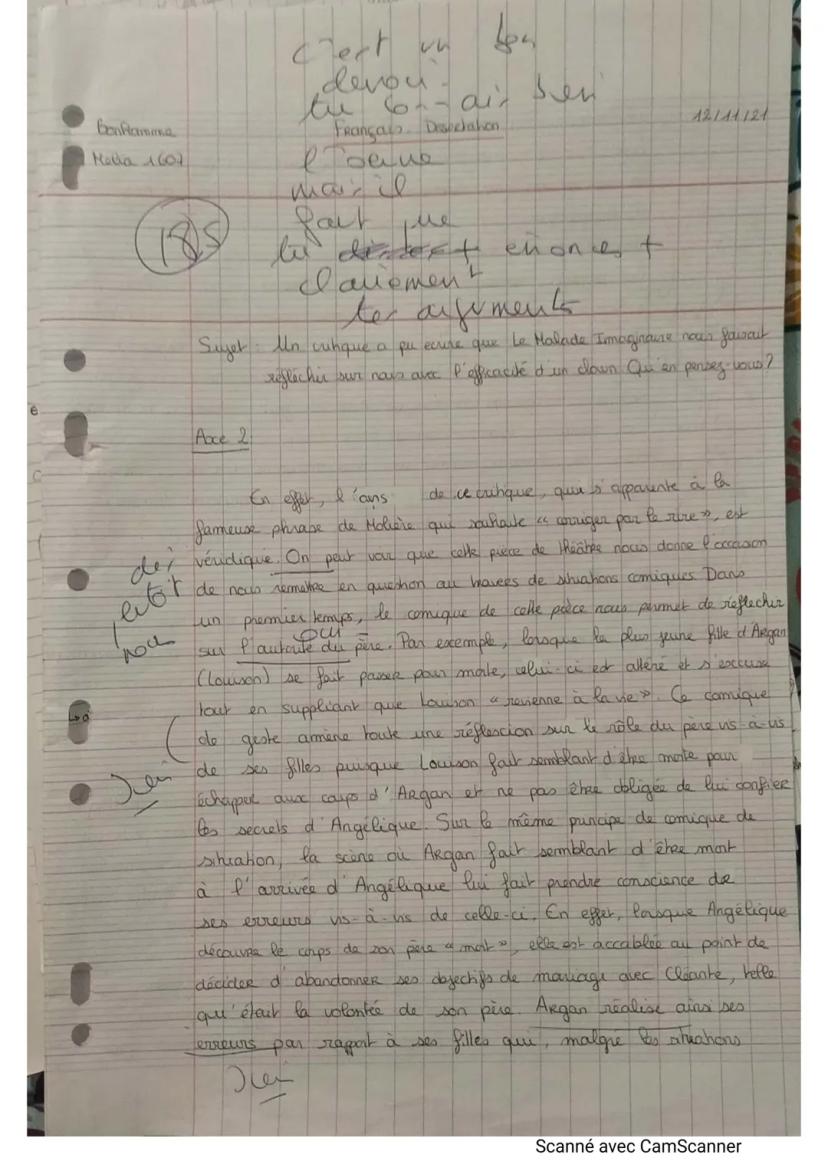 C'est un bon
devoir
tu connais bien
12/11/21
Français Dissertation
Melia 1607
l'oeuvre
mais il
18,5
faut que
tu énonces +
clairement
tes arguments
Sujet : Un critique a pu ecrire que Le Malade Imaginaire nous faisait
réfléchir sur nous avec l'efficacité d'un clown. Qu'en pensez-vous ?
Axe 2
En effet, l'avis de ce critique, qui s'apparente à la
fameuse phrase de Molière qui souhaite « corriger par le rire », est
véridique. On peut voir que cette pièce de théâtre nous donne l'occasion
de nous remettre en question au travers de situations comiques. Dans
un premier temps, le comique de cette pièce nous permet de réflechir
oui
sur l'autorité du père. Par exemple, lorsque la plus jeune fille d'Argan
(Louison) se fait passer pour morte, celui-ci est altéré et s'excuse
tout en suppliant que Louison « revienne à la vie ». Ce comique
de geste amène toute une réflexion sur le rôle du père vis-à-vis
de ses filles puisque Louison fait semblant d'être morte pour
bien
échapper aux coups d'Argan et ne pas être obligée de lui confier
les secrets d'Angélique. Sur le même principe de comique de
situation, la scène où Argan fait semblant d'être mort
à l'arrivée d'Angélique lui fait prendre conscience de
ses erreurs vis-à-vis de celle-ci. En effet, lorsque Angélique
découvre le corps de son père « mort », elle est accablée au point de
décider d'abandonner ses objectifs de mariage avec Cléante, telle
qu'était la volontée de son père. Argan réalise ainsi ses
erreurs par rapport à ses filles qui, malgré les situations
bien
Scanné avec CamScanner